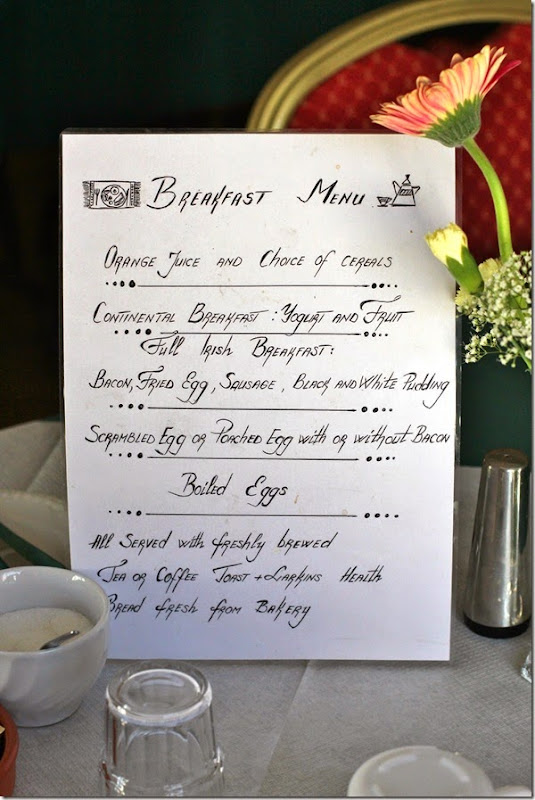 Breakfast Menu
Orange Juice and Choice of cereals
Continental Breakfast : Yogurt and Fruit
Full Irish Breakfast:
Bacon, Fried Egg, Sausage, Black and White Pudding
Scrambled Egg or Poached Egg with or without Bacon
Boiled Eggs
All Served with freshly brewed
Tea or Coffee Toast + Larkins Health
Bread fresh from Bakery